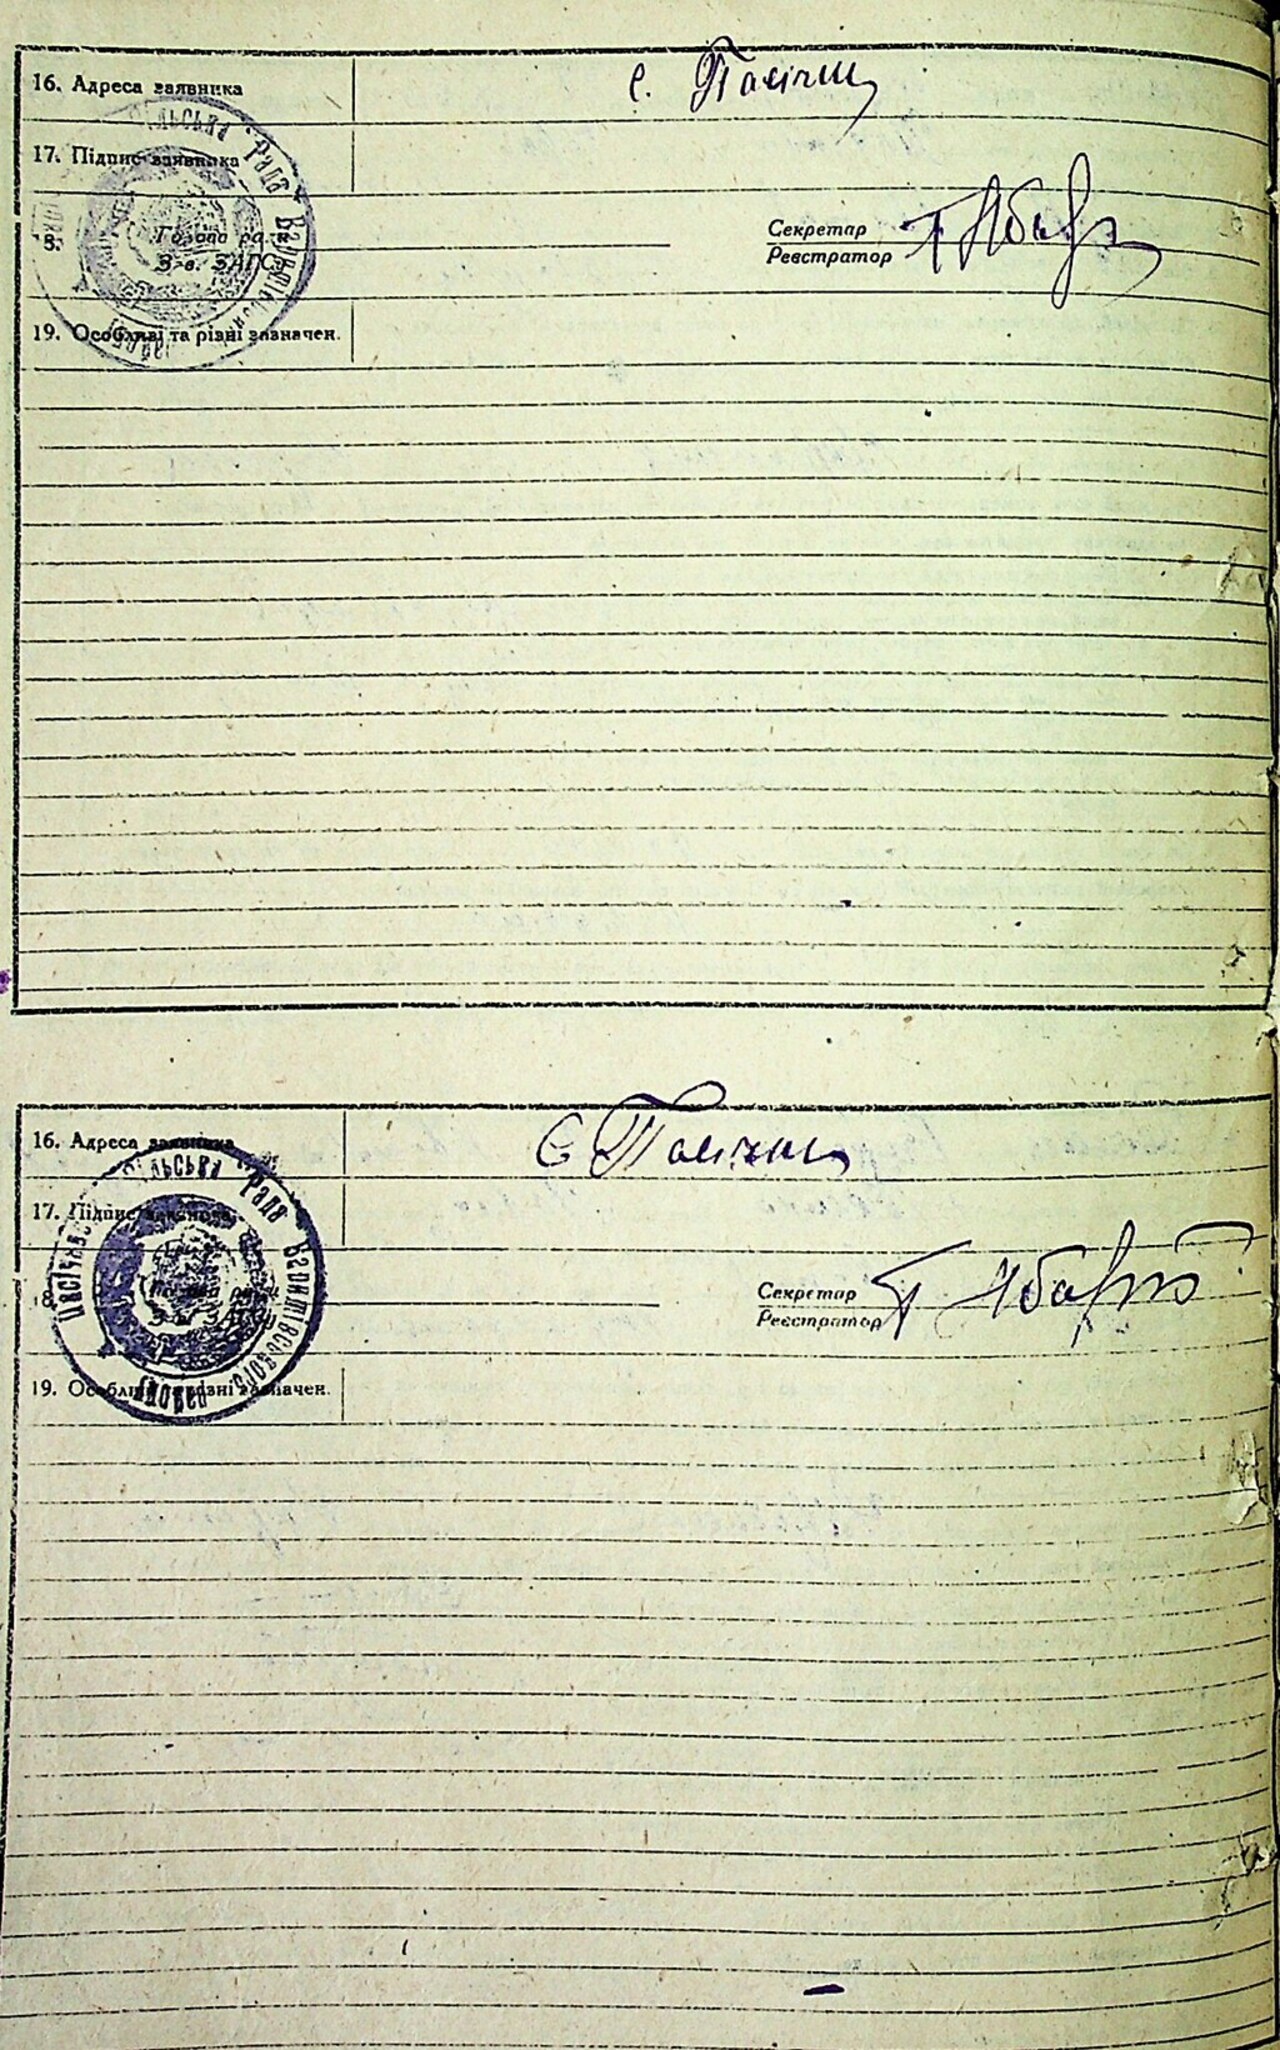 16. Адреса заявника с. Палічи
17. Підпис заявника
Сільська Рада
18. Голова ради Секретар
Зав. ЗАГС Реєстратор
19. Особливі та різні зазначен.
16. Адреса заявника С Палічи
17. Підпис заявника
Сільська Рада
18. Голова ради Секретар
Зав. ЗАГС Реєстратор
19. Особливі та різні зазначен.